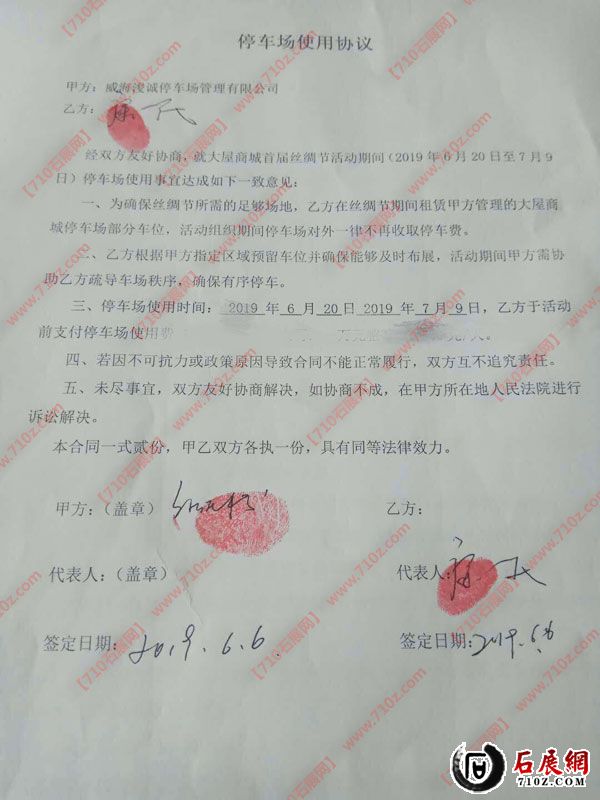 停车场使用协议
甲方：威海浚诚停车场管理有限公司
乙方：
经双方友好协商，就大屋商城首届丝绸节活动期间（2019年6月20日至7月9
日）停车场使用事宜达成如下一致意见：
一、为确保丝绸节所需的足够场地，乙方在丝绸节期间租赁甲方管理的大屋商
城停车场部分车位，活动组织期间停车场对外一律不再收取停车费。
二、乙方根据甲方指定区域预留车位并确保能够及时布展，活动期间甲方需协
助乙方疏导车场秩序，确保有序停车。
三、停车场使用时间：2019年6月20日2019年7月9日，乙方于活动
前支付停车场使用费
四、若因不可抗力或政策原因导致合同不能正常履行，双方互不追究责任。
五、未尽事宜，双方友好协商解决，如协商不成，在甲方所在地人民法院进行
诉讼解决。
本合同一式贰份，甲乙双方各执一份，具有同等法律效力。
甲方：（盖章） 乙方：
代表人：（盖章） 代表人：
签定日期：2019.6.6 签定日期：2019.6.6
【710石展网】www.710z.com
石展網
710Z.COM